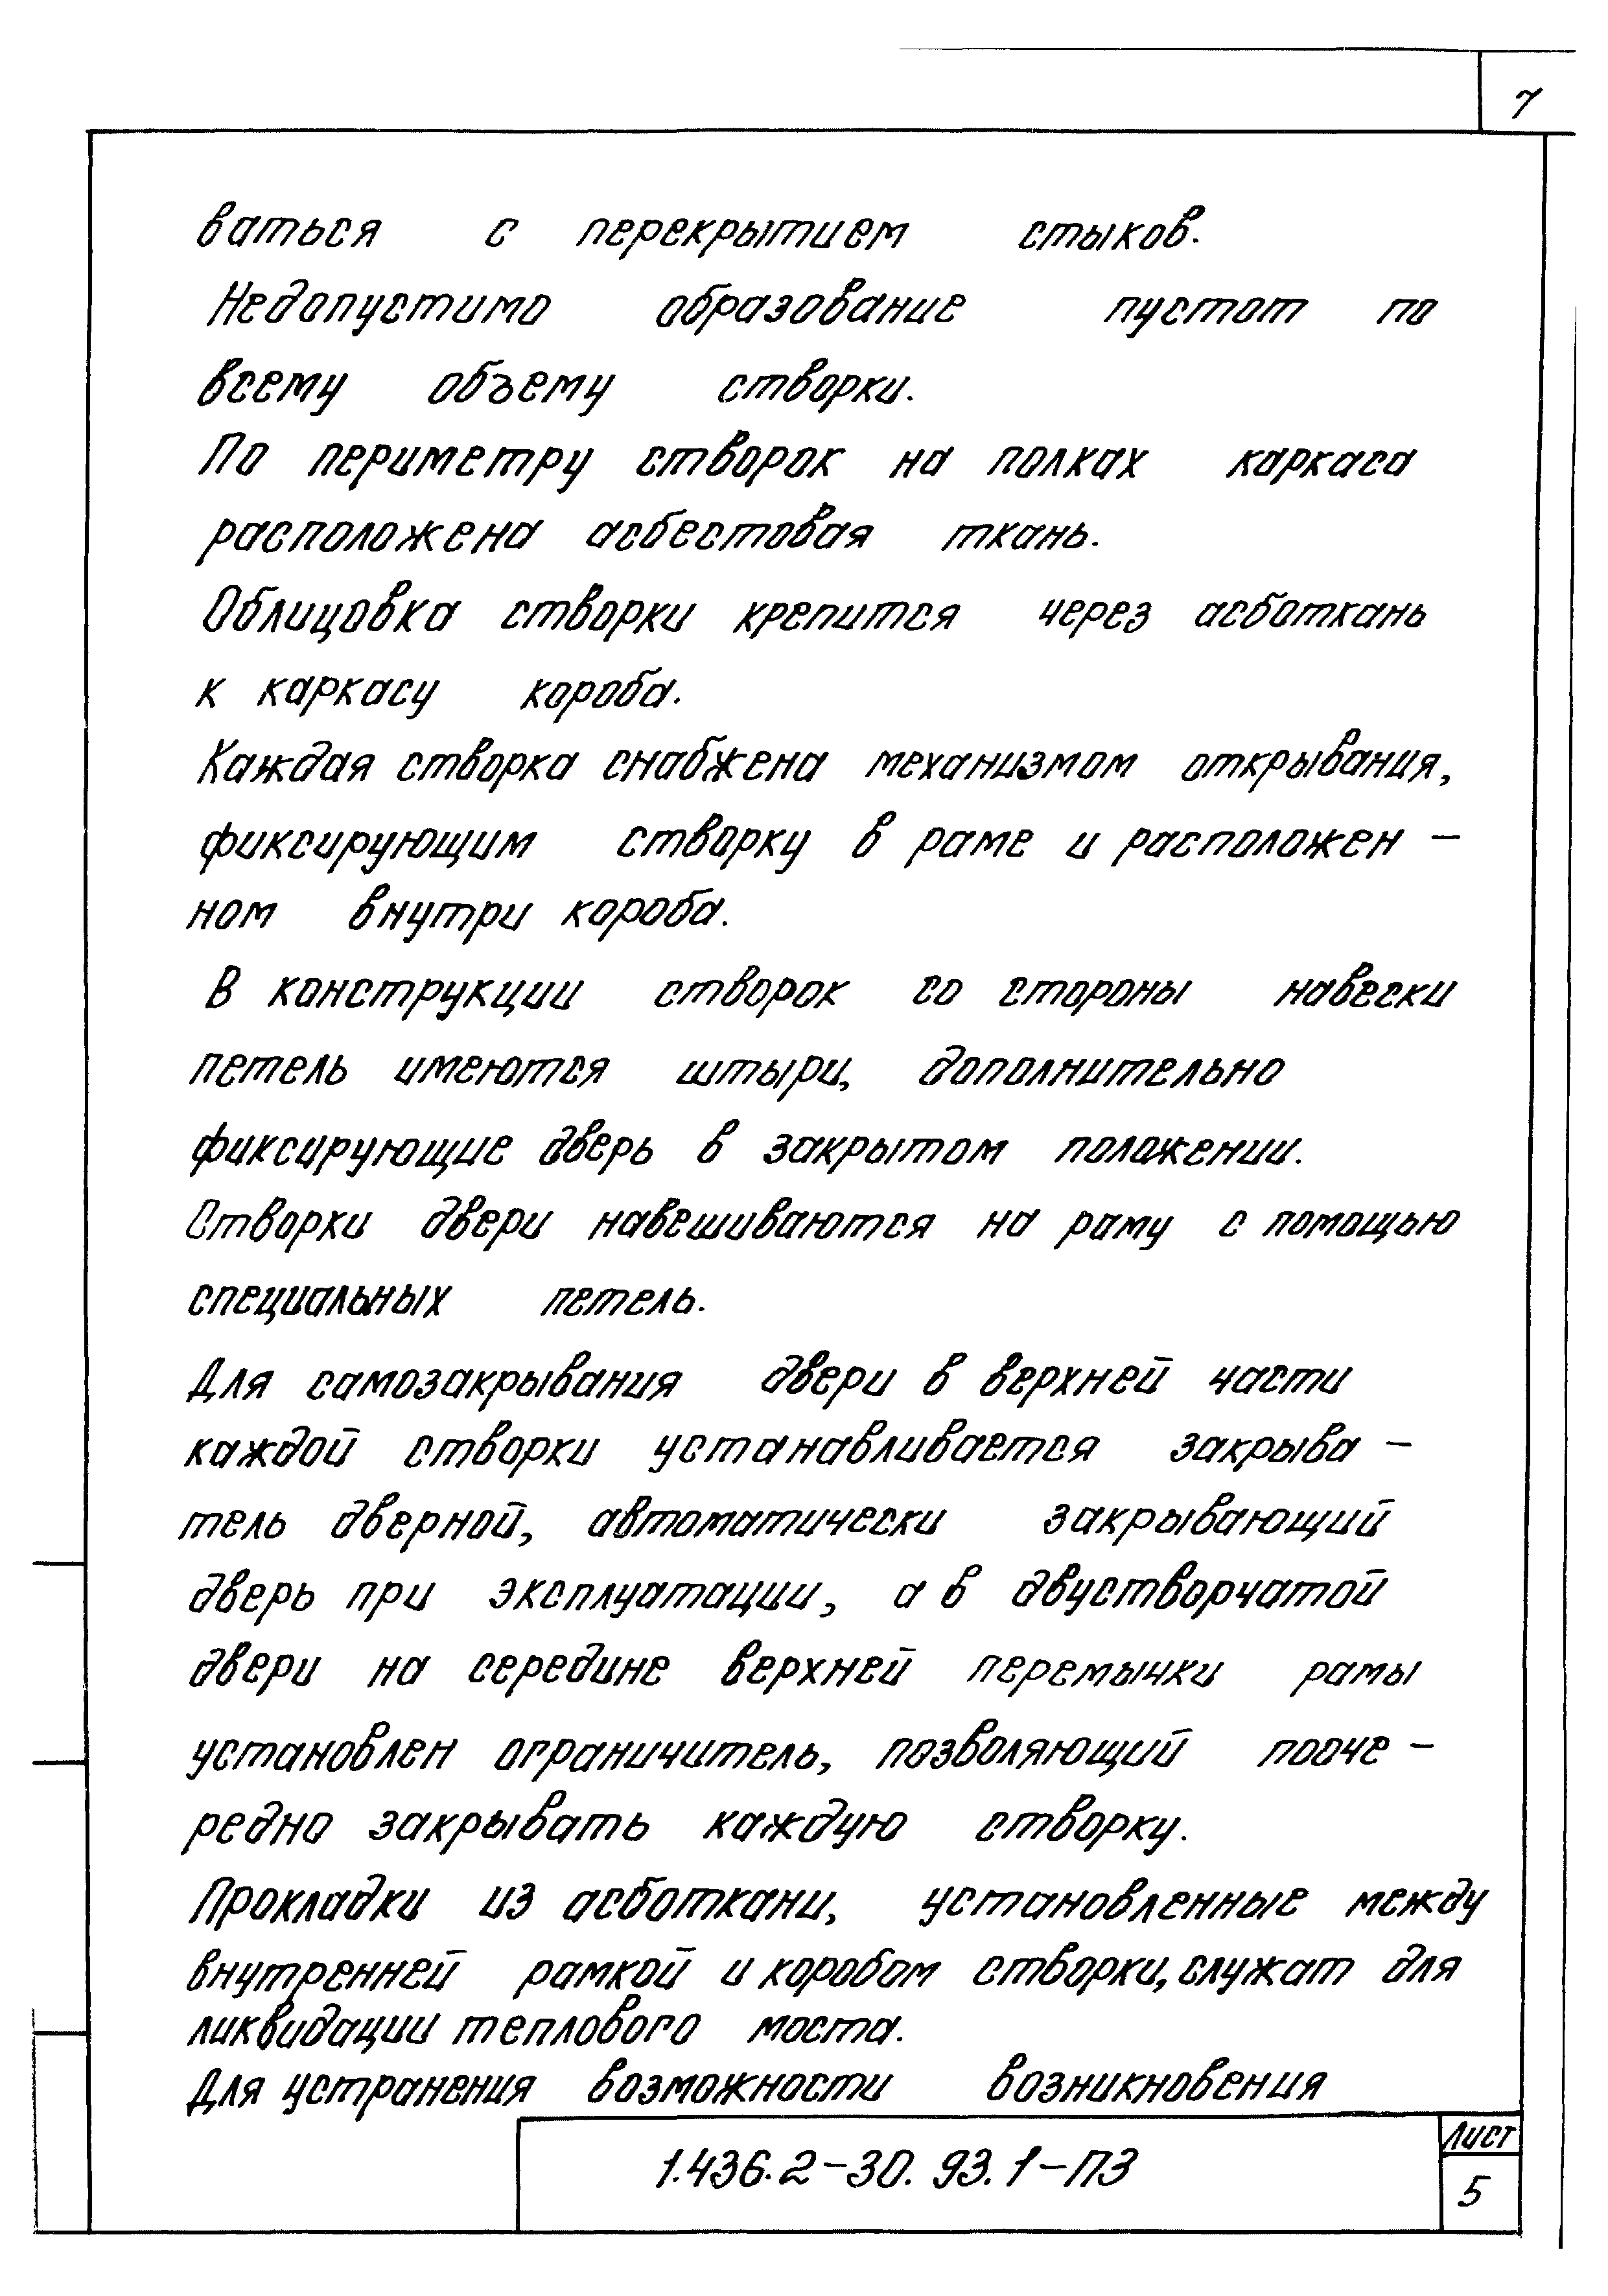 7
ваться с перекрытием стыков.
Недопустимо образование пустот по
всему объему створки.
По периметру створок на полках каркаса
расположена асбестовая ткань.
Облицовка створки крепится через асботкань
к каркасу короба.
Каждая створка снабжена механизмом открывания,
фиксирующим створку в раме и расположен-
ном внутри короба.
В конструкции створок со стороны навески
петель имеются штыри, дополнительно
фиксирующие дверь в закрытом положении.
Створки двери навешиваются на раму с помощью
специальных петель.
Для самозакрывания двери в верхней части
каждой створки устанавливается закрыва-
тель дверной, автоматически закрывающий
дверь при эксплуатации, а в двустворчатой
двери на середине верхней перемычки рамы
установлен ограничитель, позволяющий пооче-
редно закрывать каждую створку.
Прокладки из асботкани, установленные между
внутренней рамкой и коробом створки, служат для
ликвидации теплового моста.
Для устранения возможности возникновения
1.436.2-30.93.1-ПЗ
Лист
5